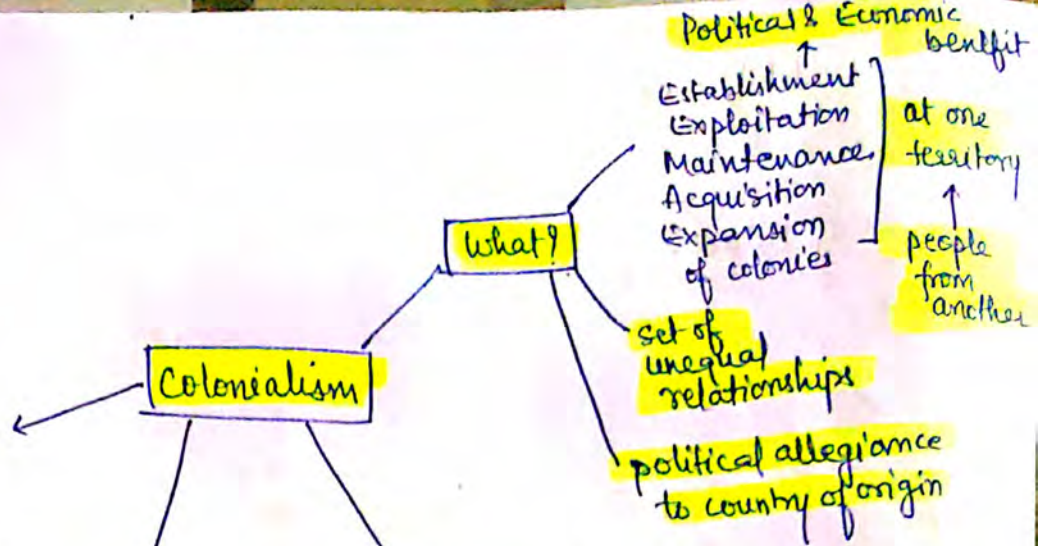 Political & Economic
benefit
Establishment
Exploitation
Maintenance
Acquisition
Expansion
of colonies
at one
territory
people
from
another
What?
set of
unequal
relationships
Colonialism
political allegiance
to country of origin